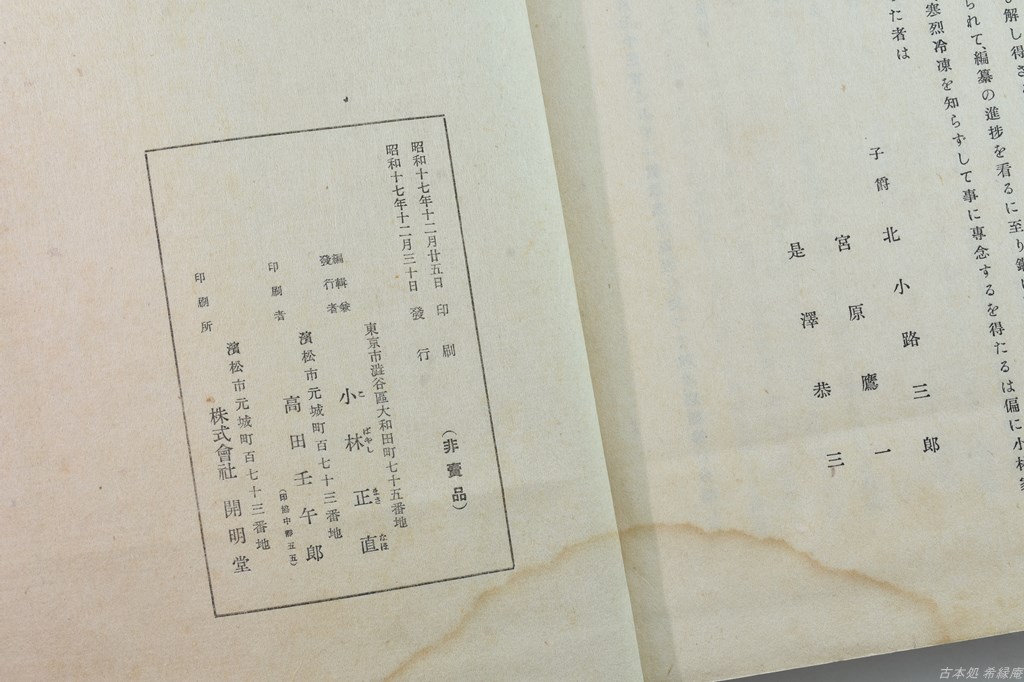 解し得さ
られて、編纂の進捗を看るに至り
寒烈冷凍を知らずして事に專念するを得たるは偏に小林家
た者は
子爵 北小路三郎
宮原鷹一
是澤恭三
昭和十七年十二月廿五日 印刷
昭和十七年十二月三十日 發行
(非賣品)
東京市澁谷區大和田町七十五番地
編輯兼發行者 小林正直
こばやしまさなほ
濱松市元城町百七十三番地
印刷者 高田壬午郎
濱松市元城町百七十三番地
印刷所 株式會社 開明堂
古本処 希縁庵